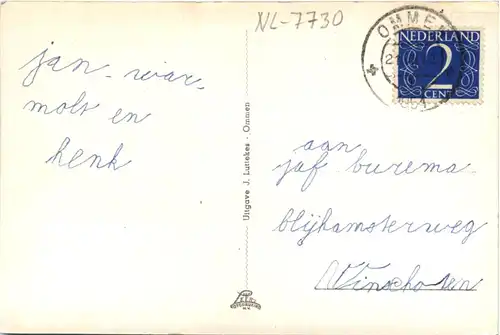 NL-7730
OMMEN
NEDERLAND
2
CENT
jan - war
mols en
henk
Uitgave J. Luttekes - Ommen
aan
jaf burema
blijhamsterweg
Winschoten